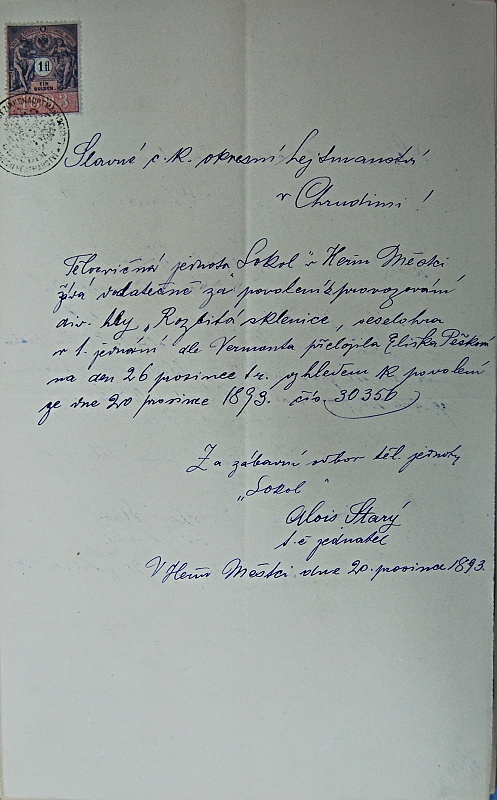 1 fl
EIN
GULDEN.
1893
Slavné c. k. okresní hejtmanství
v Chrudimi!
Tělocvičná jednota „Sokol" v Heřm Městci
žádá dodatečně za povolení k provozování
div. hry „Rozbitá sklenice, veselohra
v 1. jednání dle Vermonta přeložila Eliška Pešková
na den 26 prosince t. r. vzhledem k povolení
ze dne 20 prosince 1893. čís. 30356
Za zábavní odbor těl. jednoty
„Sokol"
Alois Starý
t. č jednatel
V Heřm Městci dne 20. prosince 1893.